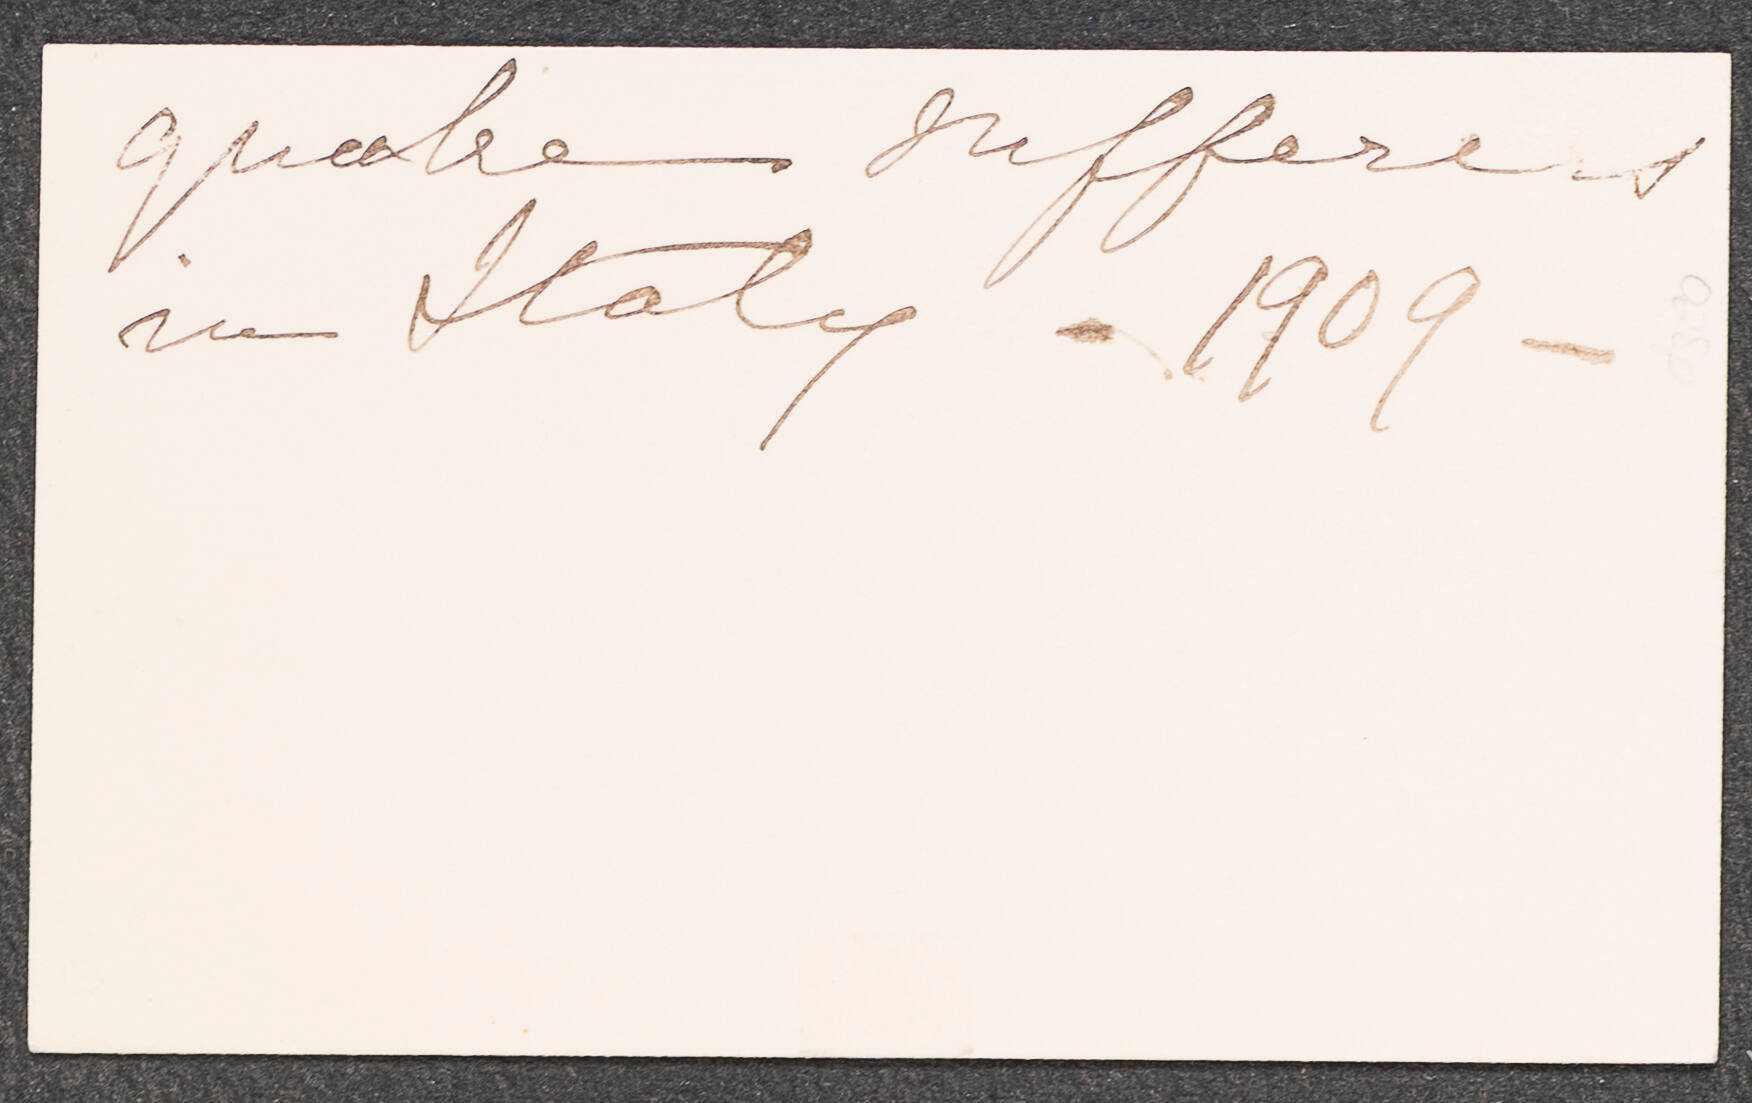 quake sufferers
in Italy - 1909 -